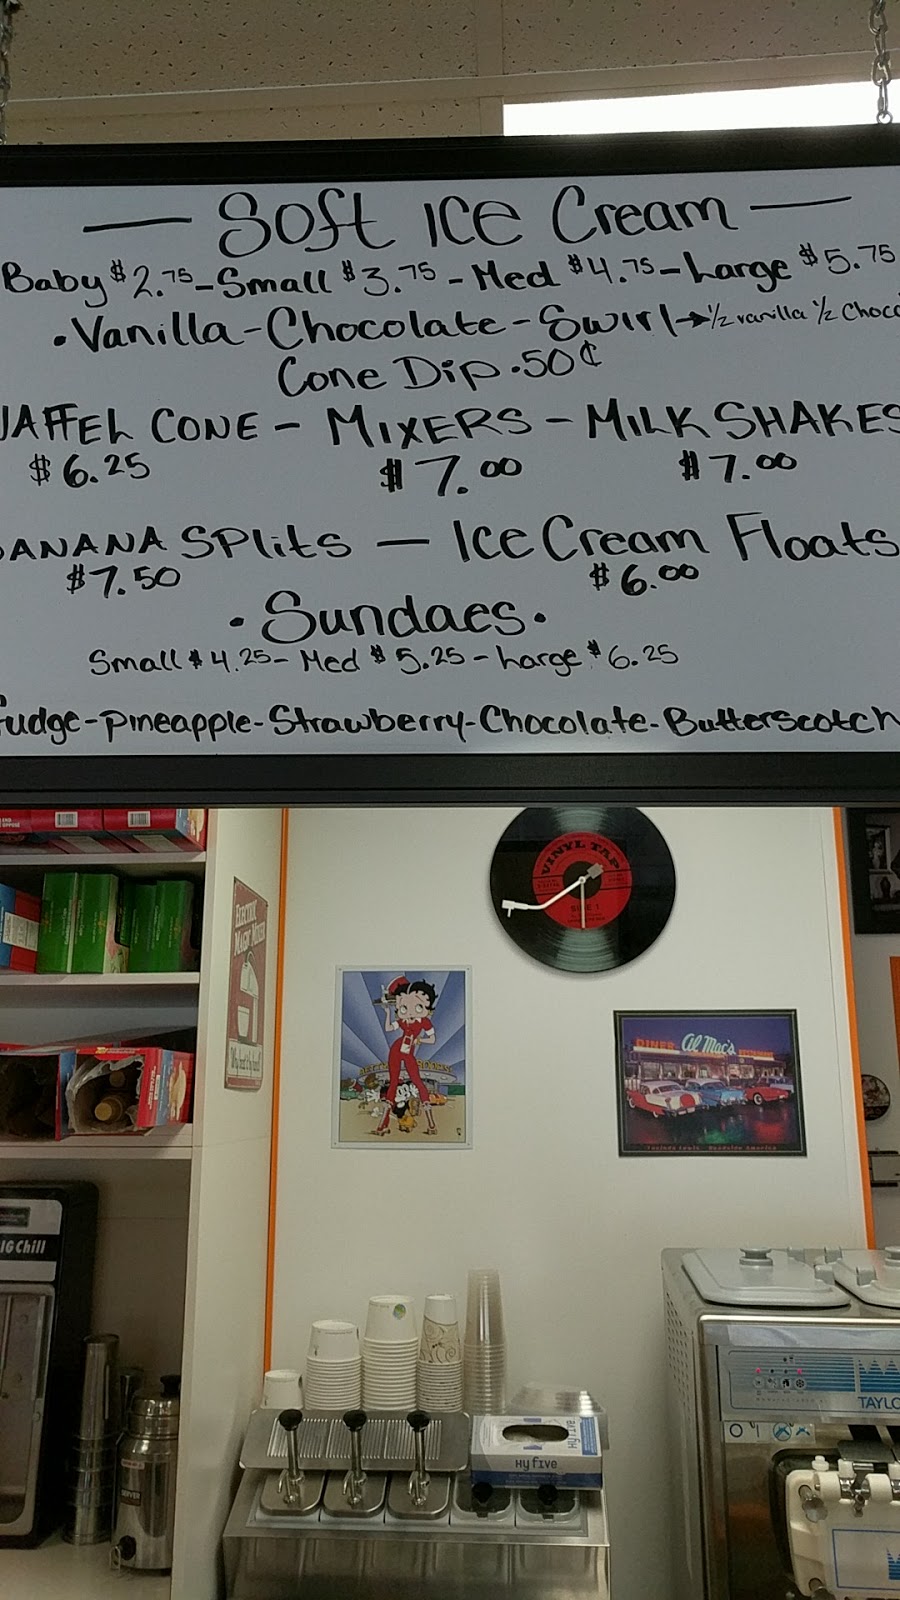 — Soft ICE Cream —
Baby $2.75 - Small $3.75 - Med $4.75 - Large $5.75
• Vanilla - Chocolate - Swirl → 1/2 vanilla 1/2 Choco
Cone Dip .50¢
WAFFEL CONE - MIXERS - MILK SHAKES
$6.25 $7.00 $7.00
BANANA SPlits — Ice Cream Floats
$7.50 $6.00
• Sundaes •
Small $4.25 - Med $5.25 - Large $6.25
Fudge - Pineapple - Strawberry - Chocolate - Butterscotch
VINYL TAP
SIDE 1
ELECTRIC
MAGIC MIXER
DINER Al Mac's
IG Chill
Hy Five
HyFive
TAYLO
SERVER